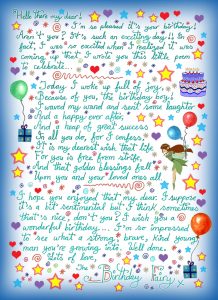 Hello there my dear!
I'm so pleased it's your birthday!
Aren't you? It's such an exciting day!! In
fact, I was so excited when I realized it was
coming up that I wrote you this little poem
to celebrate...
Today I woke up full of joy,
Because of you, the birthday boy!
I waved my wand and sent some laughter
And a happy ever after,
And a heap of great success
To all you do, for I confess,
It is my dearest wish that life
For you is free from strife,
And that golden blessings fall
Upon you and your loved ones all.
I hope you enjoyed that my dear. I suppose
it's a bit sentimental but I think sometimes
that's nice, don't you? I wish you a
wonderful birthday.... I'm so impressed
to see what a strong, brave, kind young
man you're growing into. Well done.
Lots of love,
The Birthday Fairy